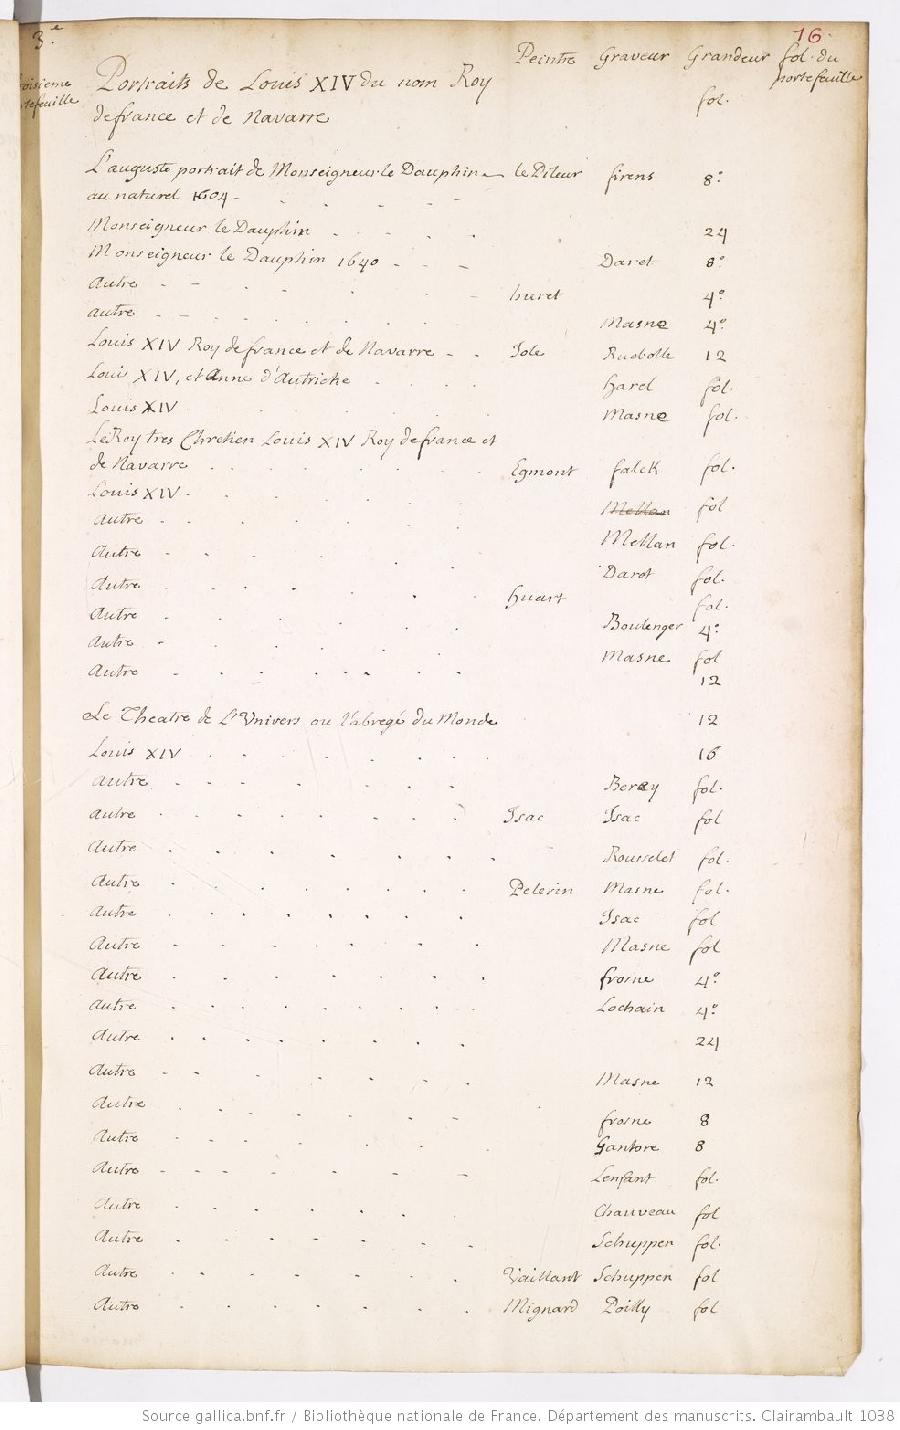 3.e
16.
Peintre Graveur Grandeur fol. du
portefeuille
Portraits de Louis XIV du nom Roy fol.
de france et de Navarre
L'auguste portrait de Monseigneur le Dauphin le Pileur firens 8.o
au naturel 1604
Monseigneur le Dauphin 24
Monseigneur le Dauphin 1640 Daret 8.o
autre huret 4.o
autre Masne 4.o
Louis XIV Roy de france et de Navarre 12
Louis XIV, et Anne d'Autriche harel fol.
Louis XIV Masne fol.
Le Roy tres Chretien Louis XIV Roy de france et
de Navarre Egmont falck fol.
Louis XIV Mellan fol
autre Mellan fol.
autre Darot fol.
autre huart fol.
autre Boulenger 4.o
autre Masne fol
autre 12
Le Theatre de L'Univers ou l'abregé du Monde 12
Louis XIV 16
autre Berey fol.
autre Isac Isac fol
autre Rousselet fol.
autre Pelerin Masne fol.
autre Isac fol
autre Masne fol
autre frosne 4.o
autre Lochain 4.o
autre 24
autre Masne 12
autre frosne 8
autre Gantore 8
autre Lenfant fol.
autre Chauveau fol
autre Schuppen fol.
autre Vaillant Schuppen fol
autre Mignard Poilly fol
Source gallica.bnf.fr / Bibliothèque nationale de France. Département des manuscrits. Clairambault 1038